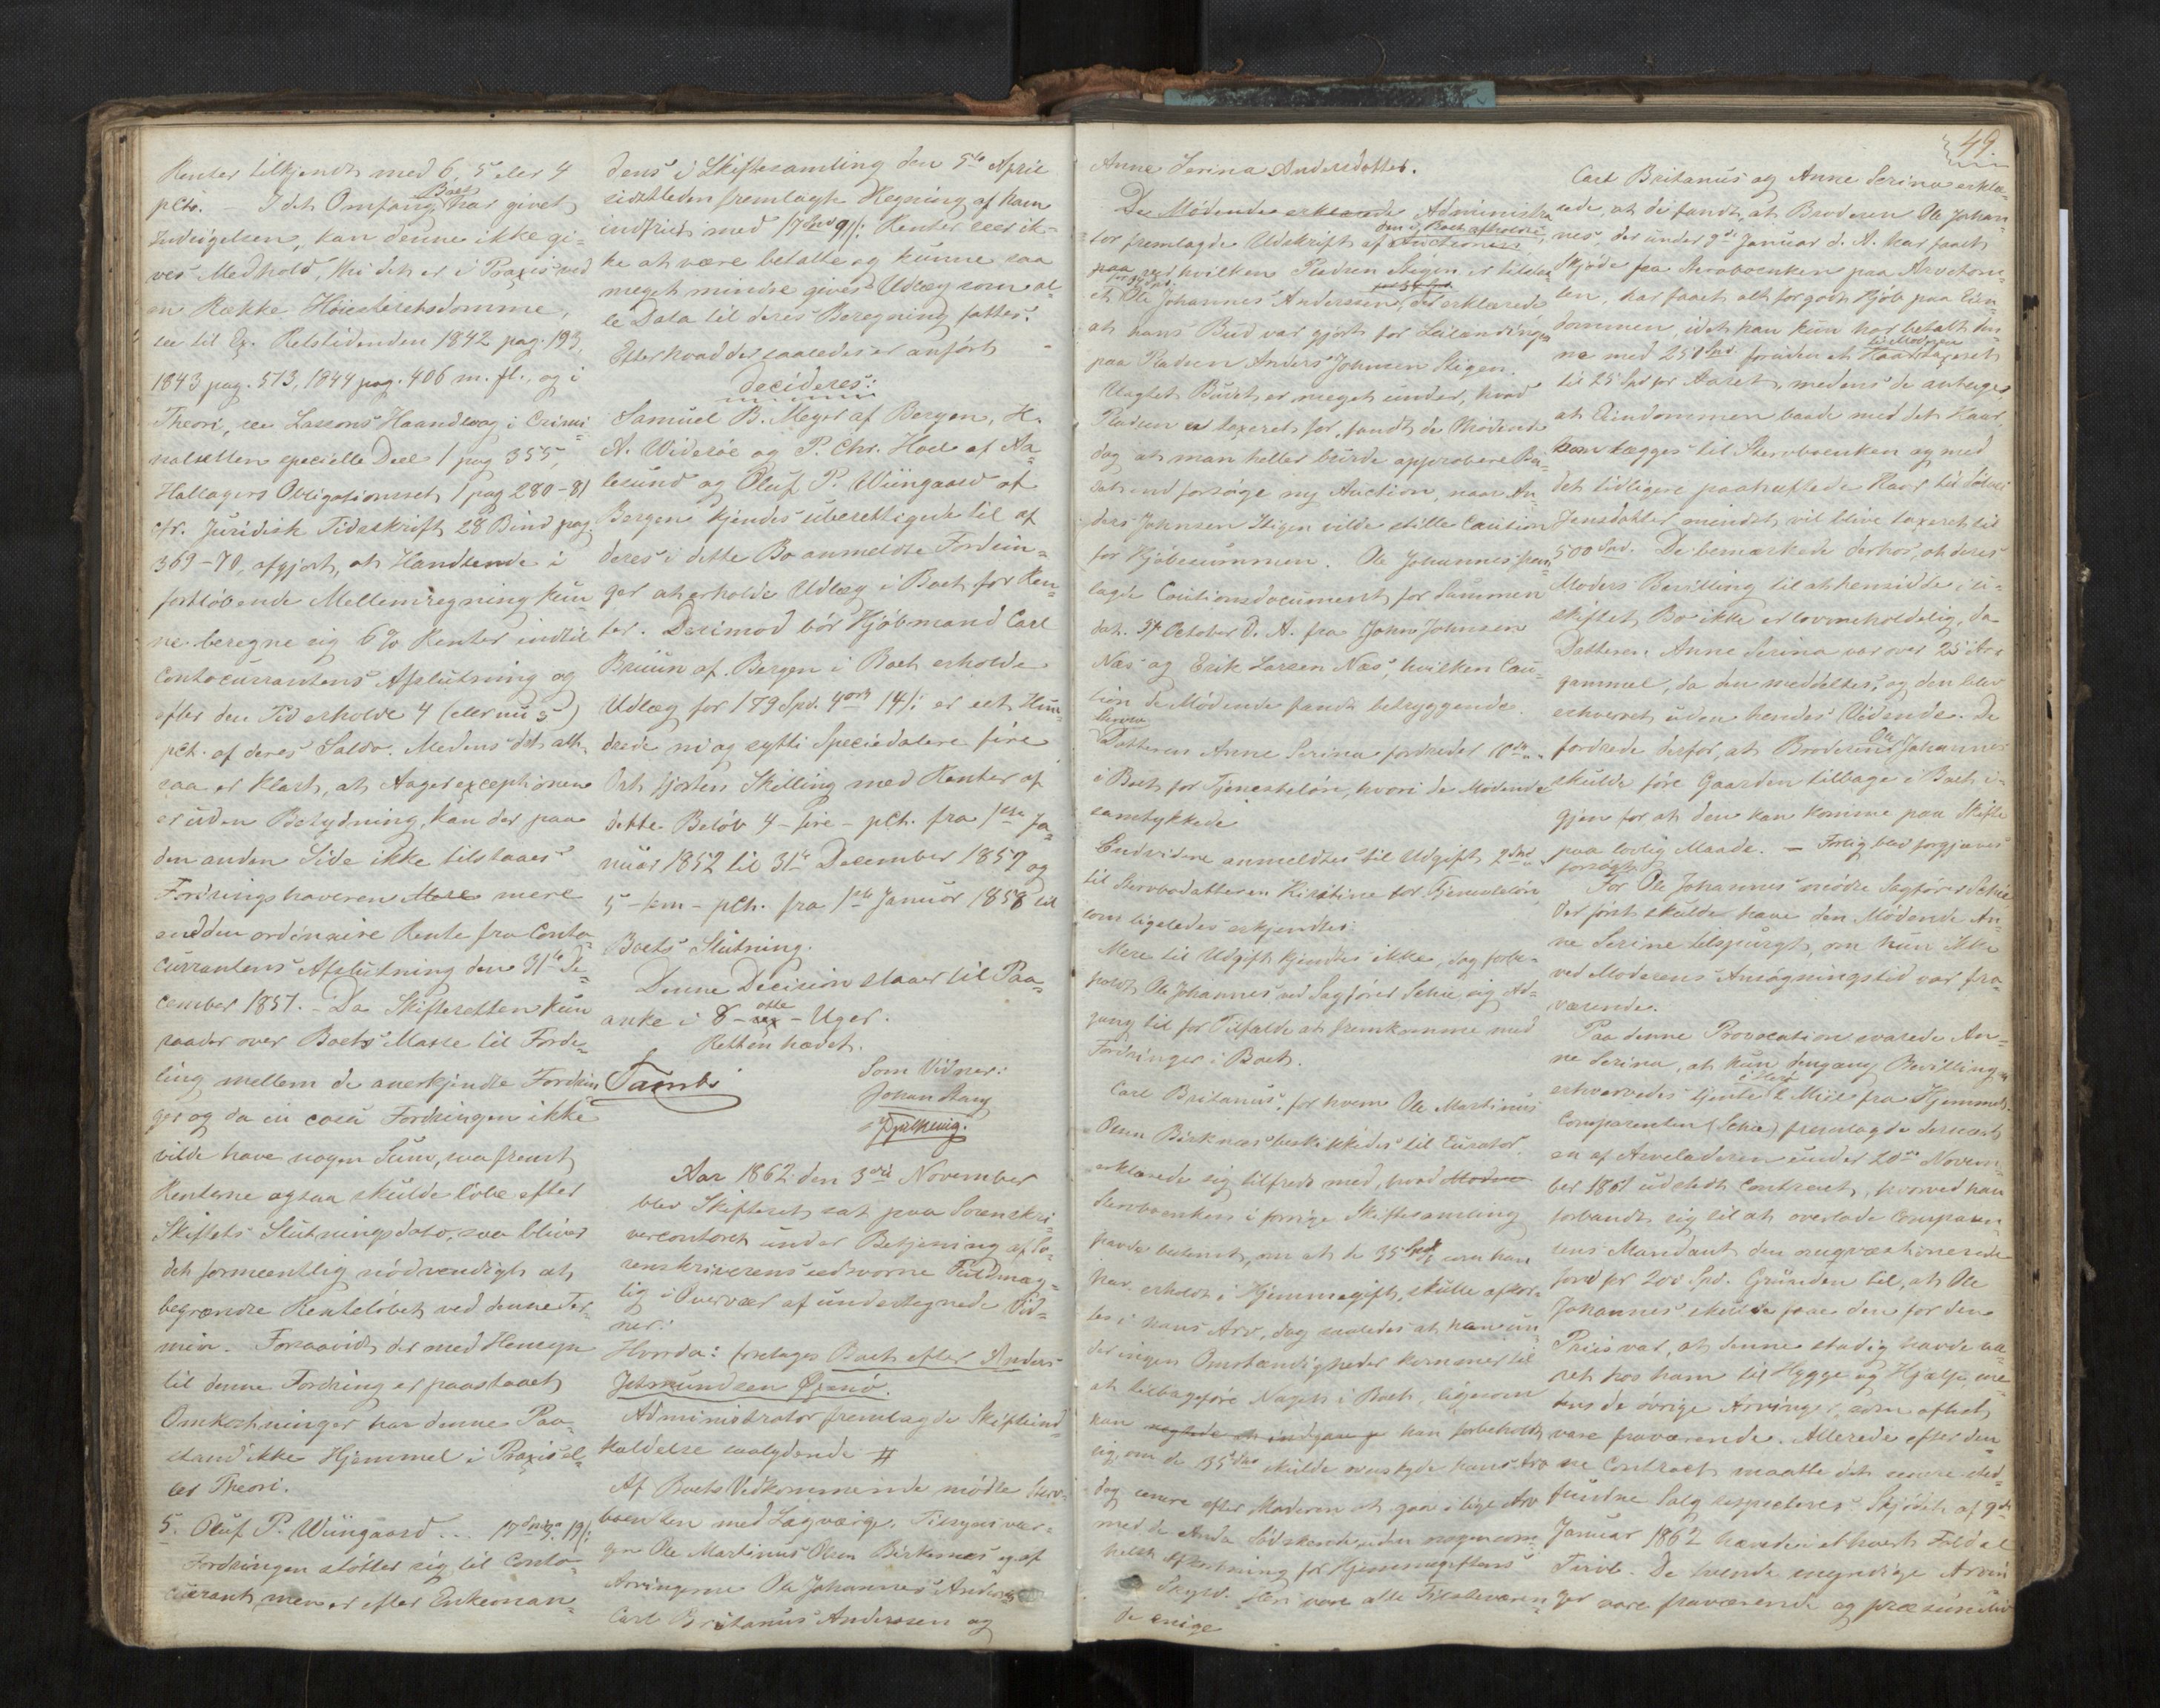 Renter tilkjendt med 6, 5 eller 4
pCto. – I det Omfang Boet har givet
Indsigelsen, kan denne ikke gi-
ves Medhold, thi det er i Praxis ved
en Række Høiesteretsdomme,
see til Ex. Retstidenden 1842 pag. 193,
1843 pag. 573, 1844 pag. 406 m. fl., og i
Theori, see Lassons Haandbog i Crimi-
nalretten specielle Deel 1 pag 355,
Hallagers Obligationsret, 1 pag 280-81
cfr. Juridisk Tidsskrift 28 Bind pag.
369-70, afgjort, at Handlende i
fortløbende Mellemregning kun-
ne beregne sig 6 % Renter indtil
Contocurrantens Afslutning og
efter den Tid erholde 4 (eller nu 5)
pCt. af deres Saldo. Medens det alt-
saa er klart, at Aagerexceptionen
er uden Betydning, kan der paa
den anden Side ikke tilstaaes
Fordringshaveren mere
end den ordinaire Rente fra Conto-
currantens Afslutning den 31te De-
cember 1851. – Da Skifteretten kun
raader over Boets Masse til Forde-
ling mellem de anerkjendte Fordrin-
ger og da in casu Fordringen ikke
vilde have nogen Sum, saafremt
Renterne ogsaa skulde løbe efter
Skiftets Slutningsdato, saa bliver
det formeentlig nødvendigt at
begrændse Renteløbet ved denne Ter-
min. Forsaavidt der med Hensyn
til denne Fordring er paastaaet
Omkostninger har denne Paa-
stand ikke Hjemmel i Praxis el-
ler Theori.
5. Oluf P. Wiingaard... 17 Spd 3 19 /:
Fordringen støtter sig til Conto-
currant, men er efter Enkeman-
dens i Skiftesamling den 5te April
sidstleden fremlagte Regning af ham
indfriet med 17 Spd 91/: Renter sees ik-
ke at være betalte og kunne saa
meget mindre gives Udlæg som al-
le Data til deres Beregning fattes.
Efter hvad der saaledes er anført
decideres:
Samuel B. Meyer af Bergen, H.
A. Widerøe og P. Chr. Hoel af Aa-
lesund og Oluf P. Wiingaard af
Bergen kjendes uberettigede til af
deres i dette Bo anmeldte Fordrin-
ger at erholde Udlæg i Boet for Ren-
ter. Derimod bør Kjøbmand Carl
Bruun af Bergen i Boet erholde
Udlæg for 179 Spd. 4 ort 14/: er eet Hun-
drede ni og sytti Speciedalere fire
Ort fjorten Skilling med Renter af
dette Beløb 4 – fire – pCt. fra 1ste Ja-
nuar 1852 til 31te December 1857 og
5 – fem – pCt. fra 1ste Januar 1858 til
Boets Slutning.
Denne Decision staar til Paa-
anke i 8 – otte – Uger.
Retten hævet.
Som Vidner:
Johan Aang
Aar 1862 den 3die November
blev Skifteret sat paa Sorenskri-
vercontoret under Betjening af So-
renskriverens edsvorne Fuldmæg-
tig i Overvær af undertegnede Vid-
ner:
Hvorda: foretoges Boet efter Anders
Administrator fremlagde Skifteind-
kaldelse saalydende #
Af Boets Vedkommende mødte Sterv-
boenken med Lagværge, Tilsynsvær-
gen Ole Martinus Olsen Birknæs og af
Arvingerne Ole Johannes Anderssen
Carl Britanus Anderssen og
49.
Anne Serina Andersdotter.
De Mødende erklærede Administra
den i Boet afholdte
tor fremlagde Udskrift af Auctionen
paa ved hvilken Pladsen Stigen er tilsla-
et Ole Johannes Anderssen, der erklærede
at hans Bud var gjort for Leilændingen
paa Pladsen Anders Johnsen Stigen.
Uagtet Budet er meget under, hvad
Pladsen er taxeret for, fandt de Mødende
dog at man heller burde approbere Bu-
det end forsøge ny Auction, naar An-
ders Johnsen Stigen vilde stille Caution
for Kjøbesummen. Ole Johannes frem-
lagde Cautionsdocument for Summen
dat. October d. A. fra John Johnsen
Næs og Erik Larsen Næs, hvilken Cau-
tion de Mødende fandt betryggende.
Datteren Anne Serina fordrede 10 Spd
i Boet for Tjenesteløn, hvori de Mødende
samtykkede
Endvidere anmeldtes til Udgift 2 Spd
til Stervbodatteren Kirstine for Tjenesteløn
som ligeledes erkjendtes.
Mere til Udgift kjendtes ikke, dog forbe-
holdt Ole Johannes ved Sagfører Schie sig Ad-
gang til for Tilfælde at fremkomme med
Fordringer i Boet.
Carl Britanus, for hvem Ole Martinus
Olsen Birknæs beskikkedes til Curator
erklærede sig tilfreds med, hvad
Stervboenken i forrige Skiftesamling
havde bestemt, om at de 35 Spd, som han
har erholdt i Hjemmegift, skulle afkor-
tes i hans Arv, dog saaledes at han un-
der ingen Omstændigheder kommer til
at tilbageføre Noget i Boet, ligesom
han forbeholdt
sig, om de 35 Spd skulde overstige hans Arv
dog senere efter Moderen at gaa i lige Arv
med de Andre Sødskende uden nogensom-
helst Afkortning for Hjemmegiftens
Skyld. Heri vare alle Tilstedeværen-
de enige
Carl Britanus og Anne Serina erklæ-
rede, at de fandt, at Broderen Ole Johan-
nes, der under 9de Januar d. A. har faaet
Skjøde fra Stervboenken paa Arvetom-
ten, har faaet alt for godt Kjøb paa Ein-
dommen, idet han kun har betalt den-
til Moderen
ne med 250 Spd foruden et Kaar taxeret
til 25 Spd for Aaret, medens de antage
at Eiendommen baade med det Kaar,
som lægges til Stervboenken og med
det tidligere paaheftede Kaar til
Jensdatter mindst vil blive taxeret til
500 Spd. De bemærkede derhos, at deres
Moders Bevilling til at hensidde i u-
skiftet Bo ikke er lovmeholdelig, da
Datteren Anne Serina var over 25 Aar
gammel, da den meddeltes, og den blev
erhvervet uden hendes Vidende. De
fordrede derfor, at Broderen Ole Johannes
skulde føre Gaarden tilbage i Boet i-
gjen for at den kan komme paa Skifte
paa lovlig Maade. – Forlig blev forgjæves
forsøgt
For Ole Johannes mødte Sagfører Schie
Der først skulde have den Mødende An-
ne Serine tilspurgt, om hun ikke
ved Moderens Ansøgningstid var fra-
værende.
Paa denne Provocation svarede An-
ne Serina, at hun dengang Bevillingen
erhvervedes tjente 2 Miil fra Hjemmet.
Comparenten (Schie) fremlagde dernæst
en af Arveladeren under 20de Novem-
ber 1861 udstedt Contract, hvorved han
forbandt sig til at overlade Comparen-
tens Mandant den omqvæstionerede
Jord for 200 Spd. Grunden til, at Ole
Johannes skulde faae den for den
Priis var, at denne stadig havde væ-
ret hos ham til Hygge og Hjælp, me-
dens de øvrige Arvinger, som oftest
vare fraværende. Allerede efter den-
ne Contract maatte det senere sted-
fundne Salg respecteres. Skjødet af 9de
Januar 1862 hævede i ethvert Fald al
Tvivl. De tvende myndige Arvin-
ger vare fraværende og